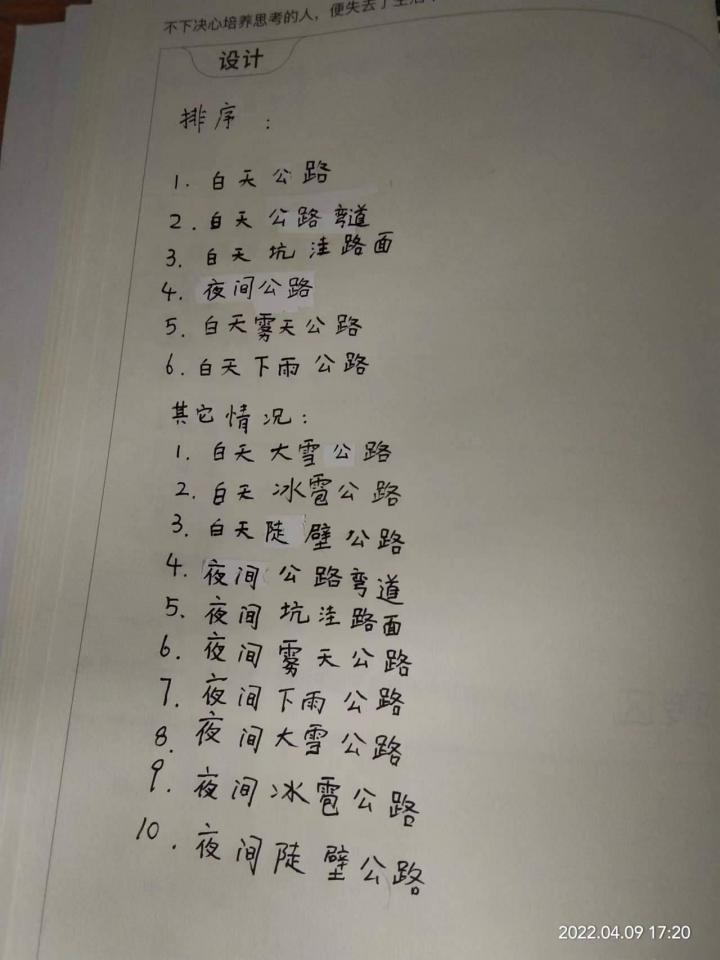 不下决心培养思考的人，便失去了生活
设计
排序：
1. 白天公路
2. 白天公路弯道
3. 白天坑洼路面
4. 夜间公路
5. 白天雾天公路
6. 白天下雨公路
其它情况：
1. 白天大雪公路
2. 白天冰雹公路
3. 白天陡壁公路
4. 夜间公路弯道
5. 夜间坑洼路面
6. 夜间雾天公路
7. 夜间下雨公路
8. 夜间大雪公路
9. 夜间冰雹公路
10. 夜间陡壁公路
2022.04.09 17:20